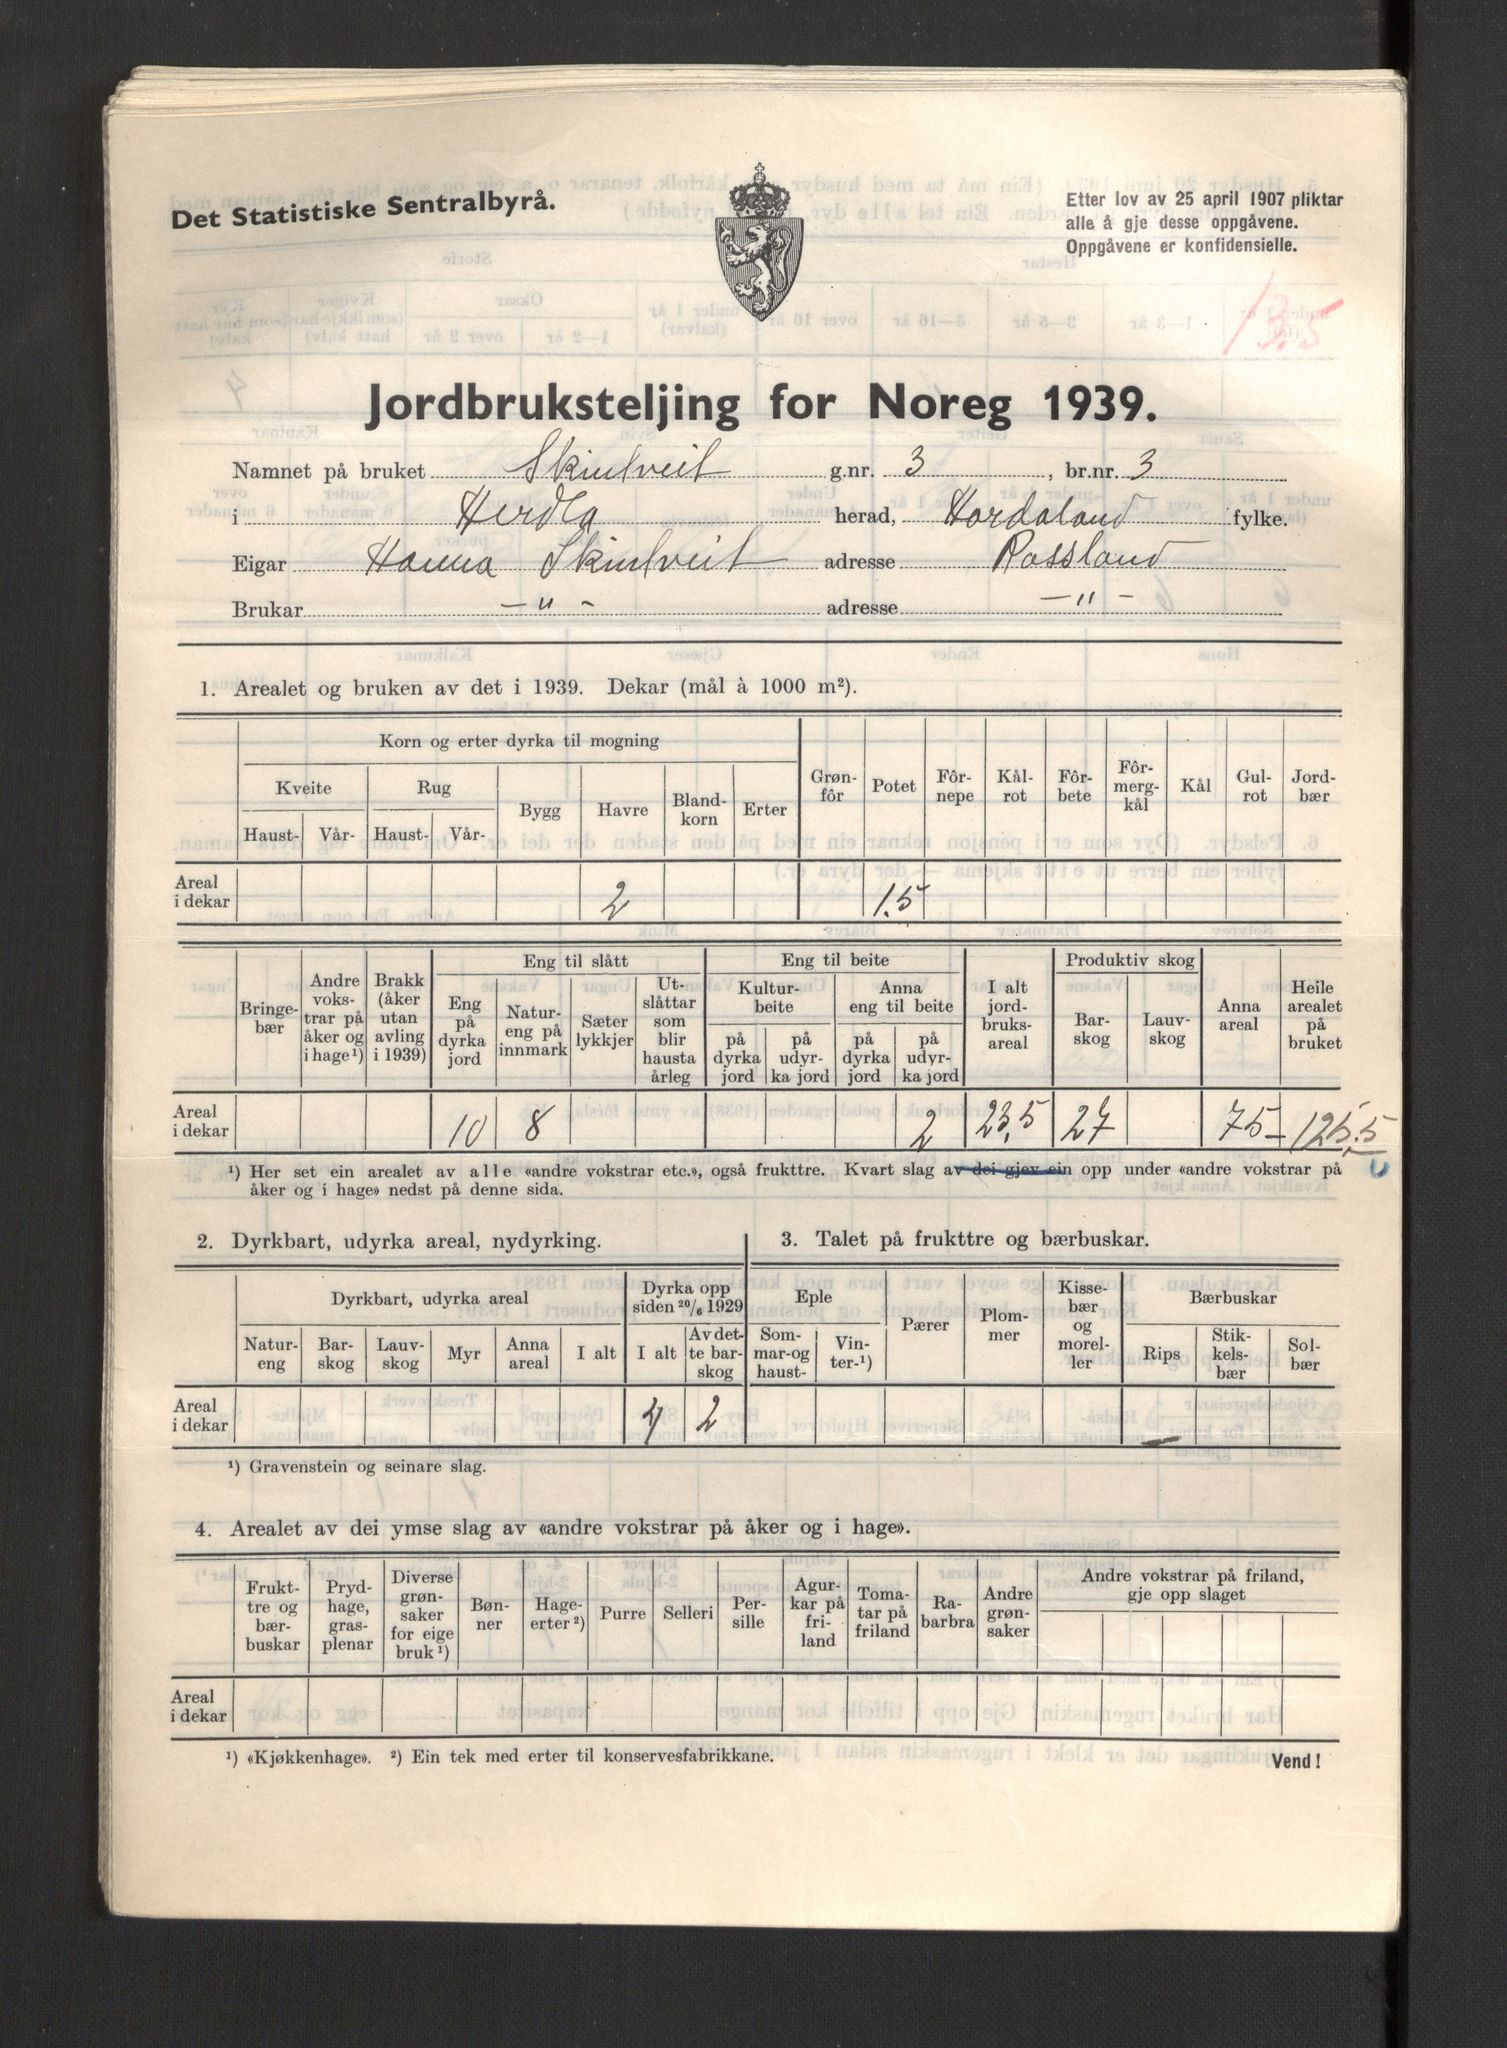 Det Statistiske Sentralbyrå.
Etter lov av 25 april 1907 pliktar
alle å gje desse oppgåvene.
Oppgåvene er konfidensielle.
135
Jordbruksteljing for Noreg 1939.
Namnet på bruket Skintveit g.nr. 3, br.nr. 3
i Herdla herad, Hordaland fylke.
Eigar Hanna Skintveit adresse Rossland
Brukar —"— adresse —"—
1. Arealet og bruken av det i 1939. Dekar (mål à 1000 m²).
Korn og erter dyrka til mogning
Kveite Rug Bygg Havre Blandkorn Erter Grønfôr Potet Fôrnepe Kålrot Fôrbete Fôrmergkål Kål Gulrot Jordbær
Haust- Vår- Haust- Vår-
Areal i dekar 2 1.5
Bringebær Andre vokstrar på åker og i hage¹) Brakk (åker utan avling i 1939) Eng til slått Eng til beite I alt jordbruksareal Produktiv skog Anna areal Heile arealet på bruket
Eng på dyrka jord Natureng på innmark Sæter lykkjer Utslåttar som blir hausta årleg Kulturbeite Anna eng til beite Barskog Lauvskog
på dyrka jord på udyrka jord på dyrka jord på udyrka jord
Areal i dekar 10 8 2 23,5 27 75 125,5
¹) Her set ein arealet av alle «andre vokstrar etc.», også frukttre. Kvart slag av dei gjev ein opp under «andre vokstrar på
åker og i hage» nedst på denne sida.
2. Dyrkbart, udyrka areal, nydyrking.
Dyrkbart, udyrka areal Dyrka opp siden 20/6 1929
Natureng Barskog Lauvskog Myr Anna areal I alt I alt Av dette barskog
Areal i dekar 4 2
¹) Gravenstein og seinare slag.
3. Talet på frukttre og bærbuskar.
Eple Pærer Plommer Kissebær og moreller Bærbuskar
Sommar-og haust- Vinter-¹) Rips Stikkelsbær Solbær
—
4. Arealet av dei ymse slag av «andre vokstrar på åker og i hage».
Frukttre og bærbuskar Prydhage, grasplenar Diverse grønsaker for eige bruk¹) Bønner Hageerter²) Purre Selleri Persille Agurkar på friland Tomatar på friland Rabarbra Andre grønsaker Andre vokstrar på friland, gje opp slaget
Areal i dekar
¹) «Kjøkkenhage». ²) Ein tek med erter til konservesfabrikkane.
Vend!